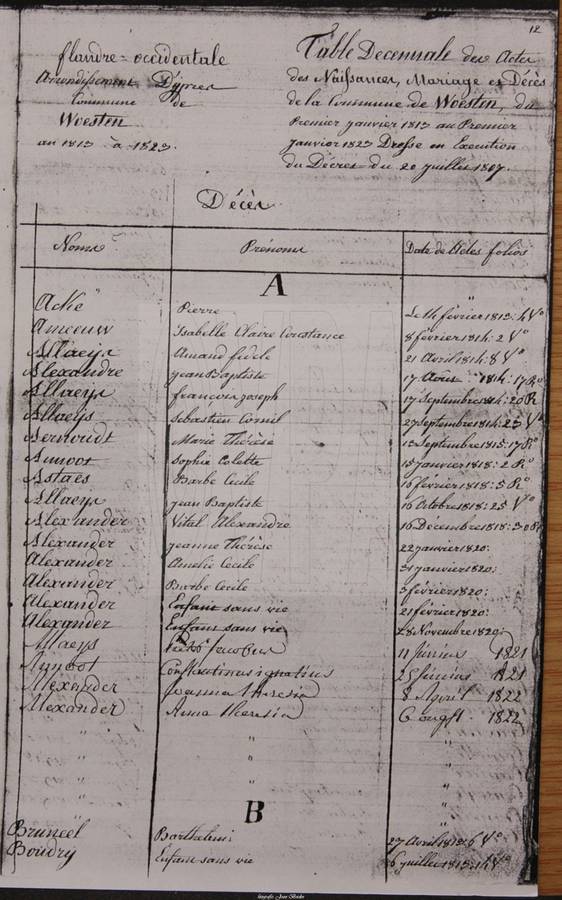 12
flandre = occidentale
Arrondissement D'ypres
Commune de
Woesten
an 1813 a 1823.
Table Decennale des Actes
des Naissances, Mariage et Décès
de la Commune de Woesten, du
Premier janvier 1813 au Premier
janvier 1823 Dressé en Execution
du Décret du 20 juillet 1807.
Décès
Noms Prénoms Date de Actes folios
A
Pierre Le 14 février 1813: 4 Vo
Ameeuw Isabelle Claire Constance 8 février 1814: 2 Vo
Allaeys Amand fidele 21 Avril 1814: 8 Vo
Alexandre jean Baptiste 17 Aout 1814: 17 Ro
Allaeys francois joseph 17 Septembre 1814: 20 R
Allaeys Sebastien Cornil 27 septembre 1814: 23 Vo
Marie Thérèse 13 Septembre 1815: 17 Ro
Sophie Colette 15 janvier 1818: 2 Ro
Astaes Barbe Cecile 16 février 1818: 5 Ro
Allaeys jean Baptiste 16 Octobre 1818: 25 Vo
Alexander Vital Alexandre 16 Decembre 1818: 30 Ro
Alexander jeanne Thérèse 22 janvier 1820:
Alexander Amelie Cecile 31 janvier 1820:
Alexander Barbe Cecile 3 février 1820:
Alexander Enfant sans vie 21 février 1820:
Alexander Enfant sans vie 28 Novembre 1820:
Allaeys Jacobus 11 1821
Constantinus ignatius 25 1821
Alexander Joanna Theresia 2 April 1822
Alexander Anna Theresia 6 ougst. 1822
B
Bruneel Barthelemi 27 Avril 1813: 6 Vo
Boudry Enfant sans vie 6 juillet 1813: 14 Vo